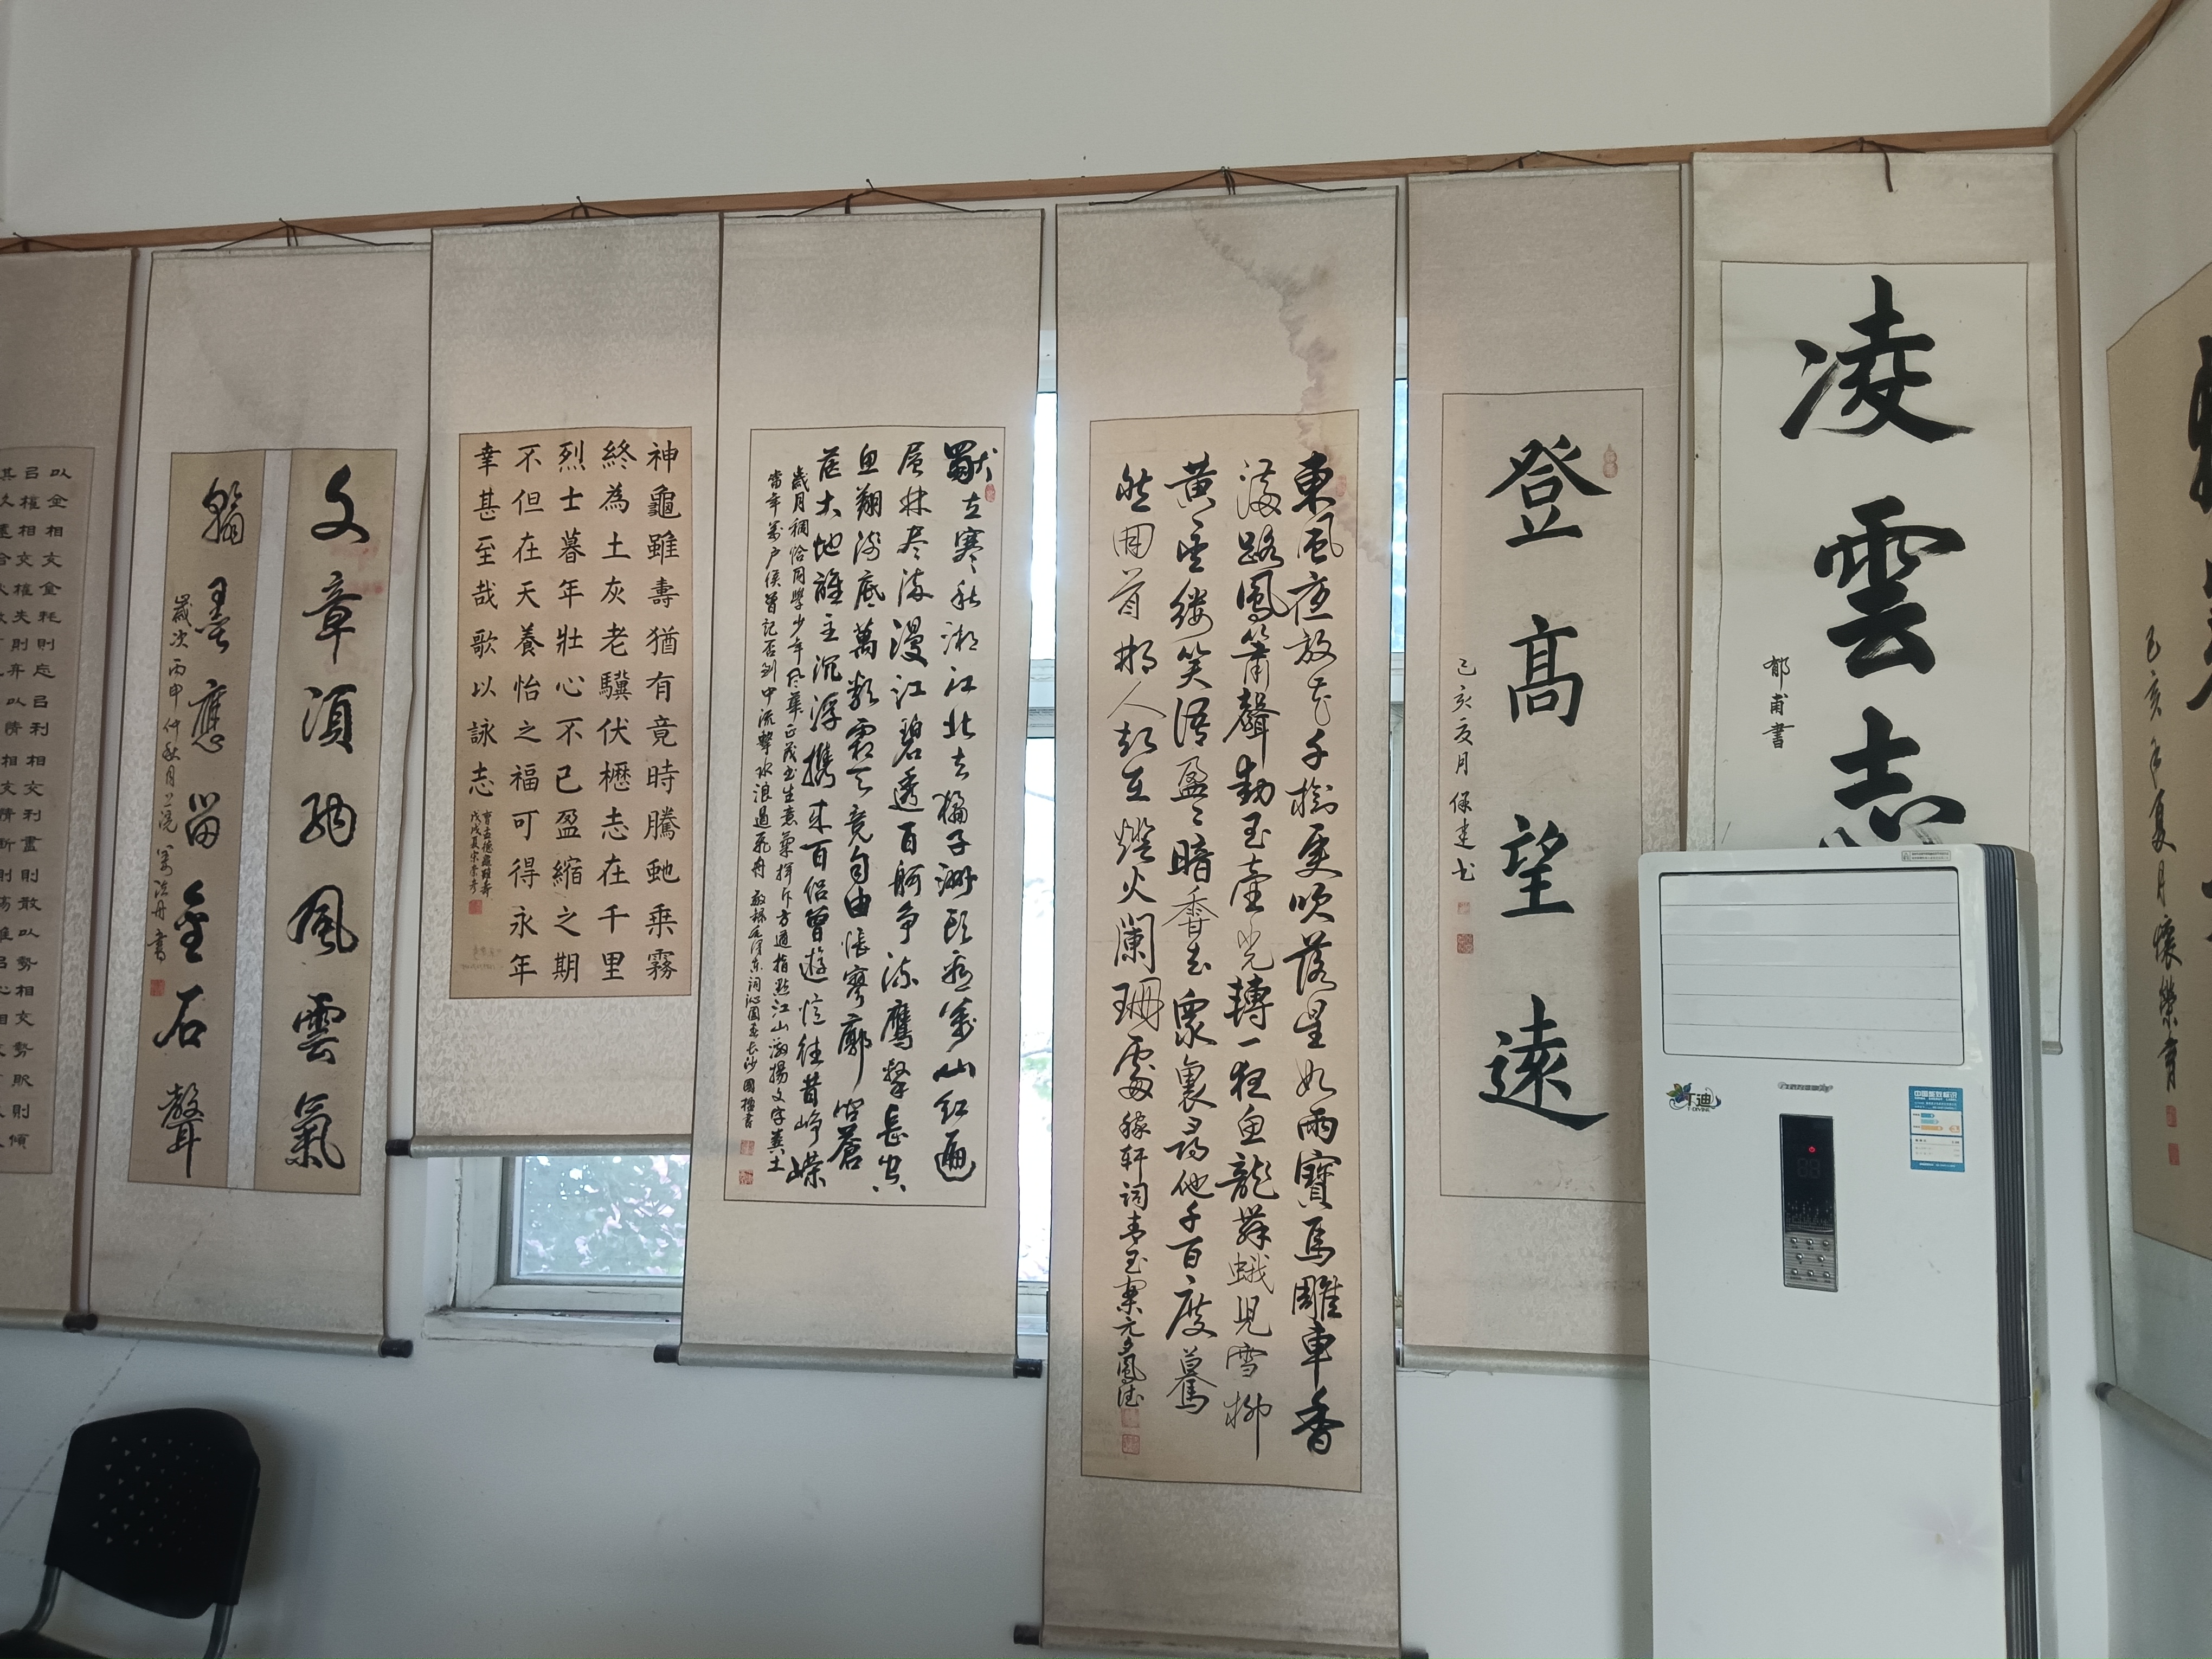 己亥年夏月懷榮書
凌雲志
郁甫書
登髙望遠
己亥夏月保建书
東風夜放花千樹更吹落星如雨寶馬雕車香
滿路鳳簫聲動玉壺光轉一夜魚龍舞蛾兒雪柳
黃金縷笑語盈〻暗香去眾裏尋他千百度驀
然回首那人卻在燈火闌珊處稼軒詞青玉案元夕鳳
獨立寒秋湘江北去橘子洲頭看萬山紅遍
層林盡染漫江碧透百舸爭流鷹擊長空
魚翔淺底萬類霜天竞自由悵寥廓問蒼
茫大地誰主沉浮攜來百侶曾遊憶往昔崢嶸
歲月稠恰同學少年风華正茂书生意氣揮斥方遒指點江山激揚文字糞土
當年萬户侯曾記否到中流擊水浪遏飛舟 敬錄毛澤東詞沁園春長沙國權書
神龜雖壽猶有竟時騰虵乘霧
終為土灰老驥伏櫪志在千里
烈士暮年壯心不已盈縮之期
不但在天養怡之福可得永年
幸甚至哉歌以詠志
文章須納風雲氣
翰墨應留金石聲
歲次丙申仲秋月
以金相交金耗則忘㠯利相交利盡則散以勢相交勢敗則傾
㠯權相交權失則弃以情相交情斷則
丁迪
中国能效标识